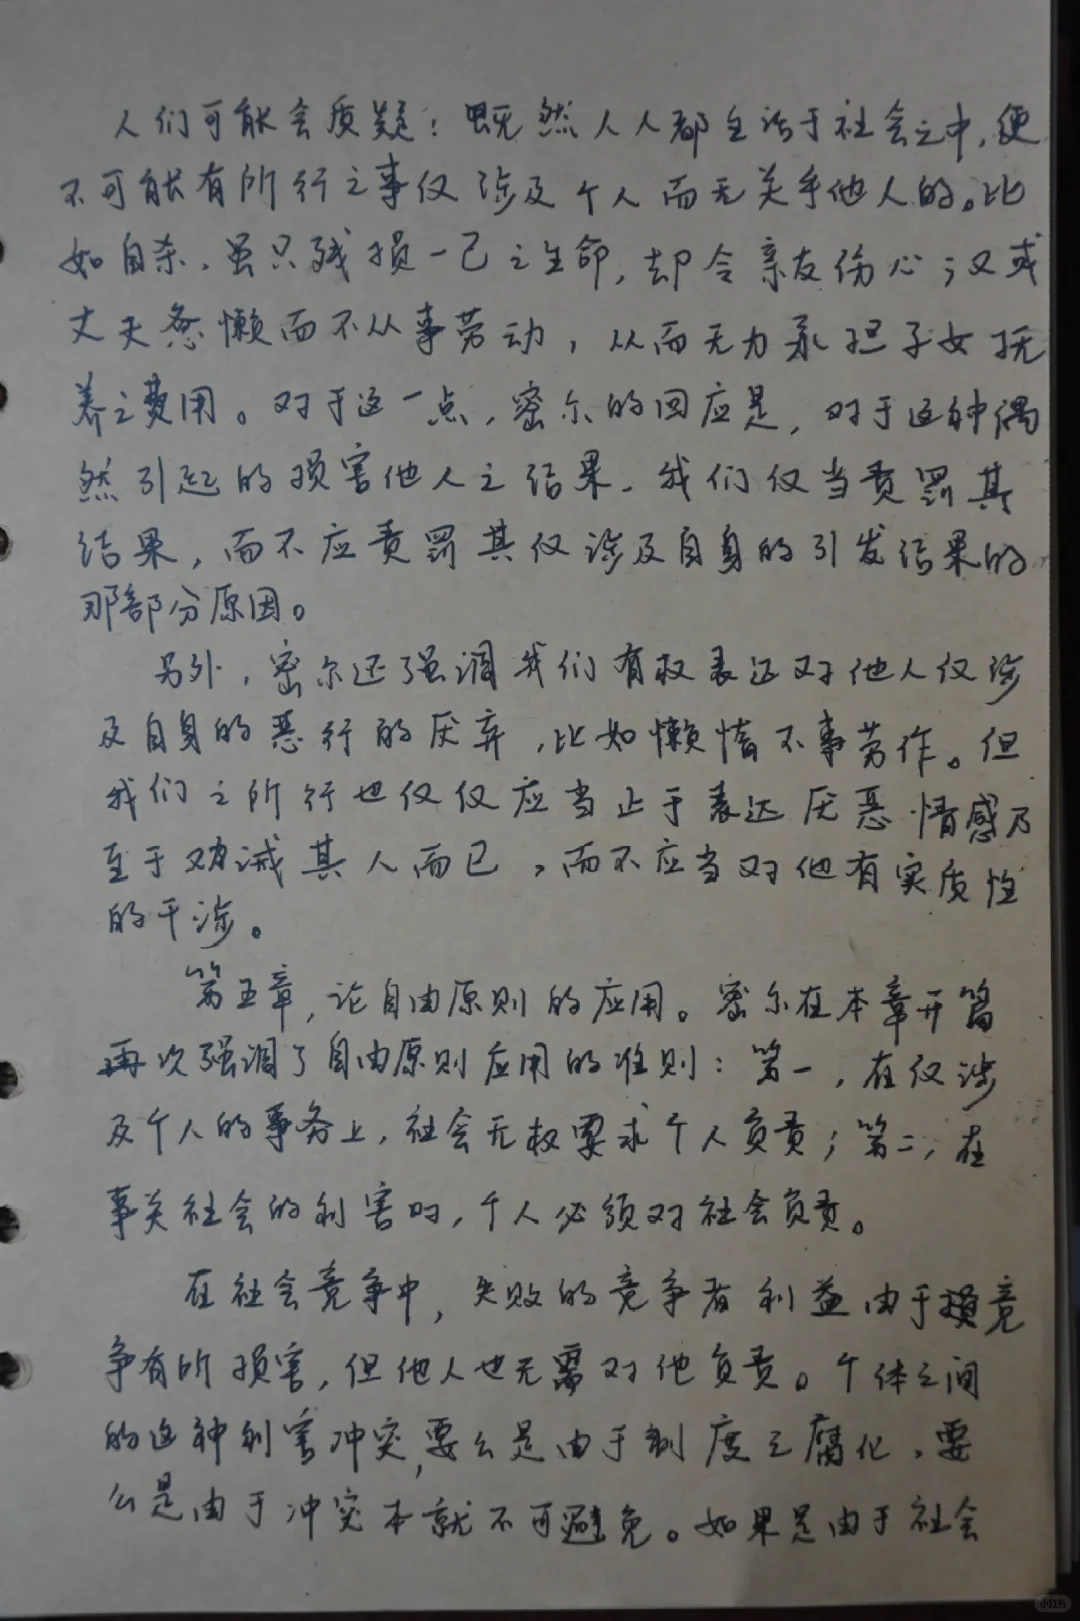 人们可能会质疑：既然人人都生活于社会之中，便
不可能有所行之事仅涉及个人而无关乎他人的。比
如自杀，虽只残损一己之生命，却令亲友伤心；又或
丈夫怠懒而不从事劳动，从而无力承担子女抚
养之费用。对于这一点，密尔的回应是，对于这种偶
然引起的损害他人之结果，我们仅当责罚其
结果，而不应责罚其仅涉及自身的引发结果的
那部分原因。
另外，密尔还强调我们有权表达对他人仅涉
及自身的恶行的厌弃，比如懒惰不事劳作。但
我们之所行也仅仅应当止于表达厌恶情感乃
至于劝诫其人而已，而不应当对他有实质性
的干涉。
第五章，论自由原则的应用。密尔在本章开篇
再次强调了自由原则应用的准则：第一，在仅涉
及个人的事务上，社会无权要求个人负责；第二，在
事关社会的利害时，个人必须对社会负责。
在社会竞争中，失败的竞争者利益由于竞
争有所损害，但他人也无需对他负责。个体之间
的这种利害冲突，要么是由于制度之腐化，要
么是由于冲突本就不可避免。如果是由于社会
小红书